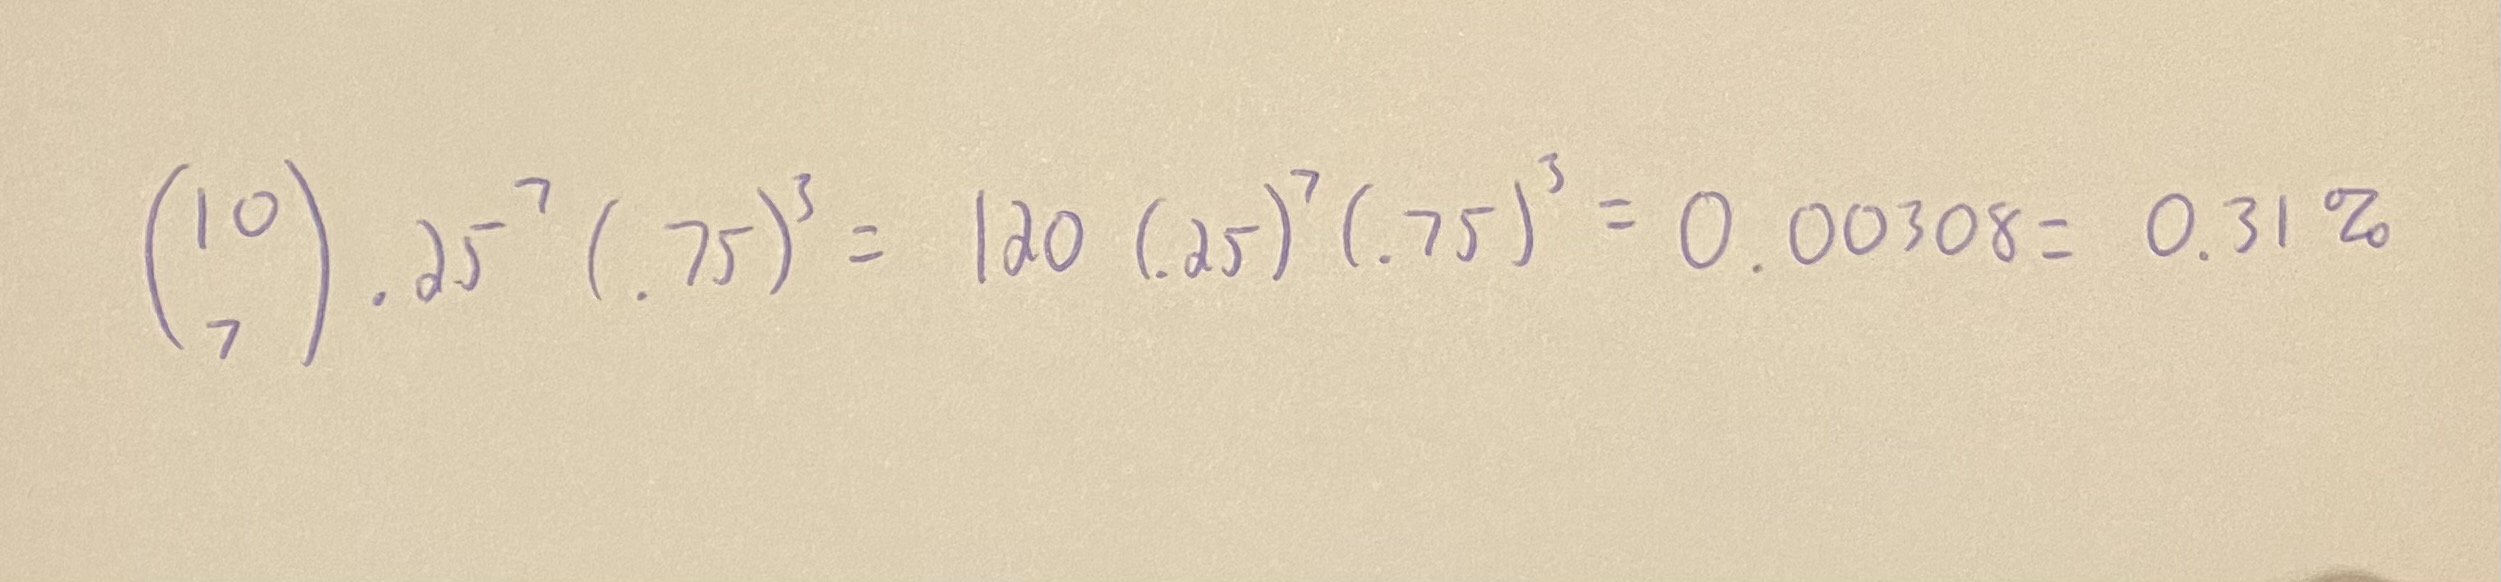 (10 7) .25⁷ (.75)³ = 120 (.25)⁷ (.75)³ = 0.00308 = 0.31%